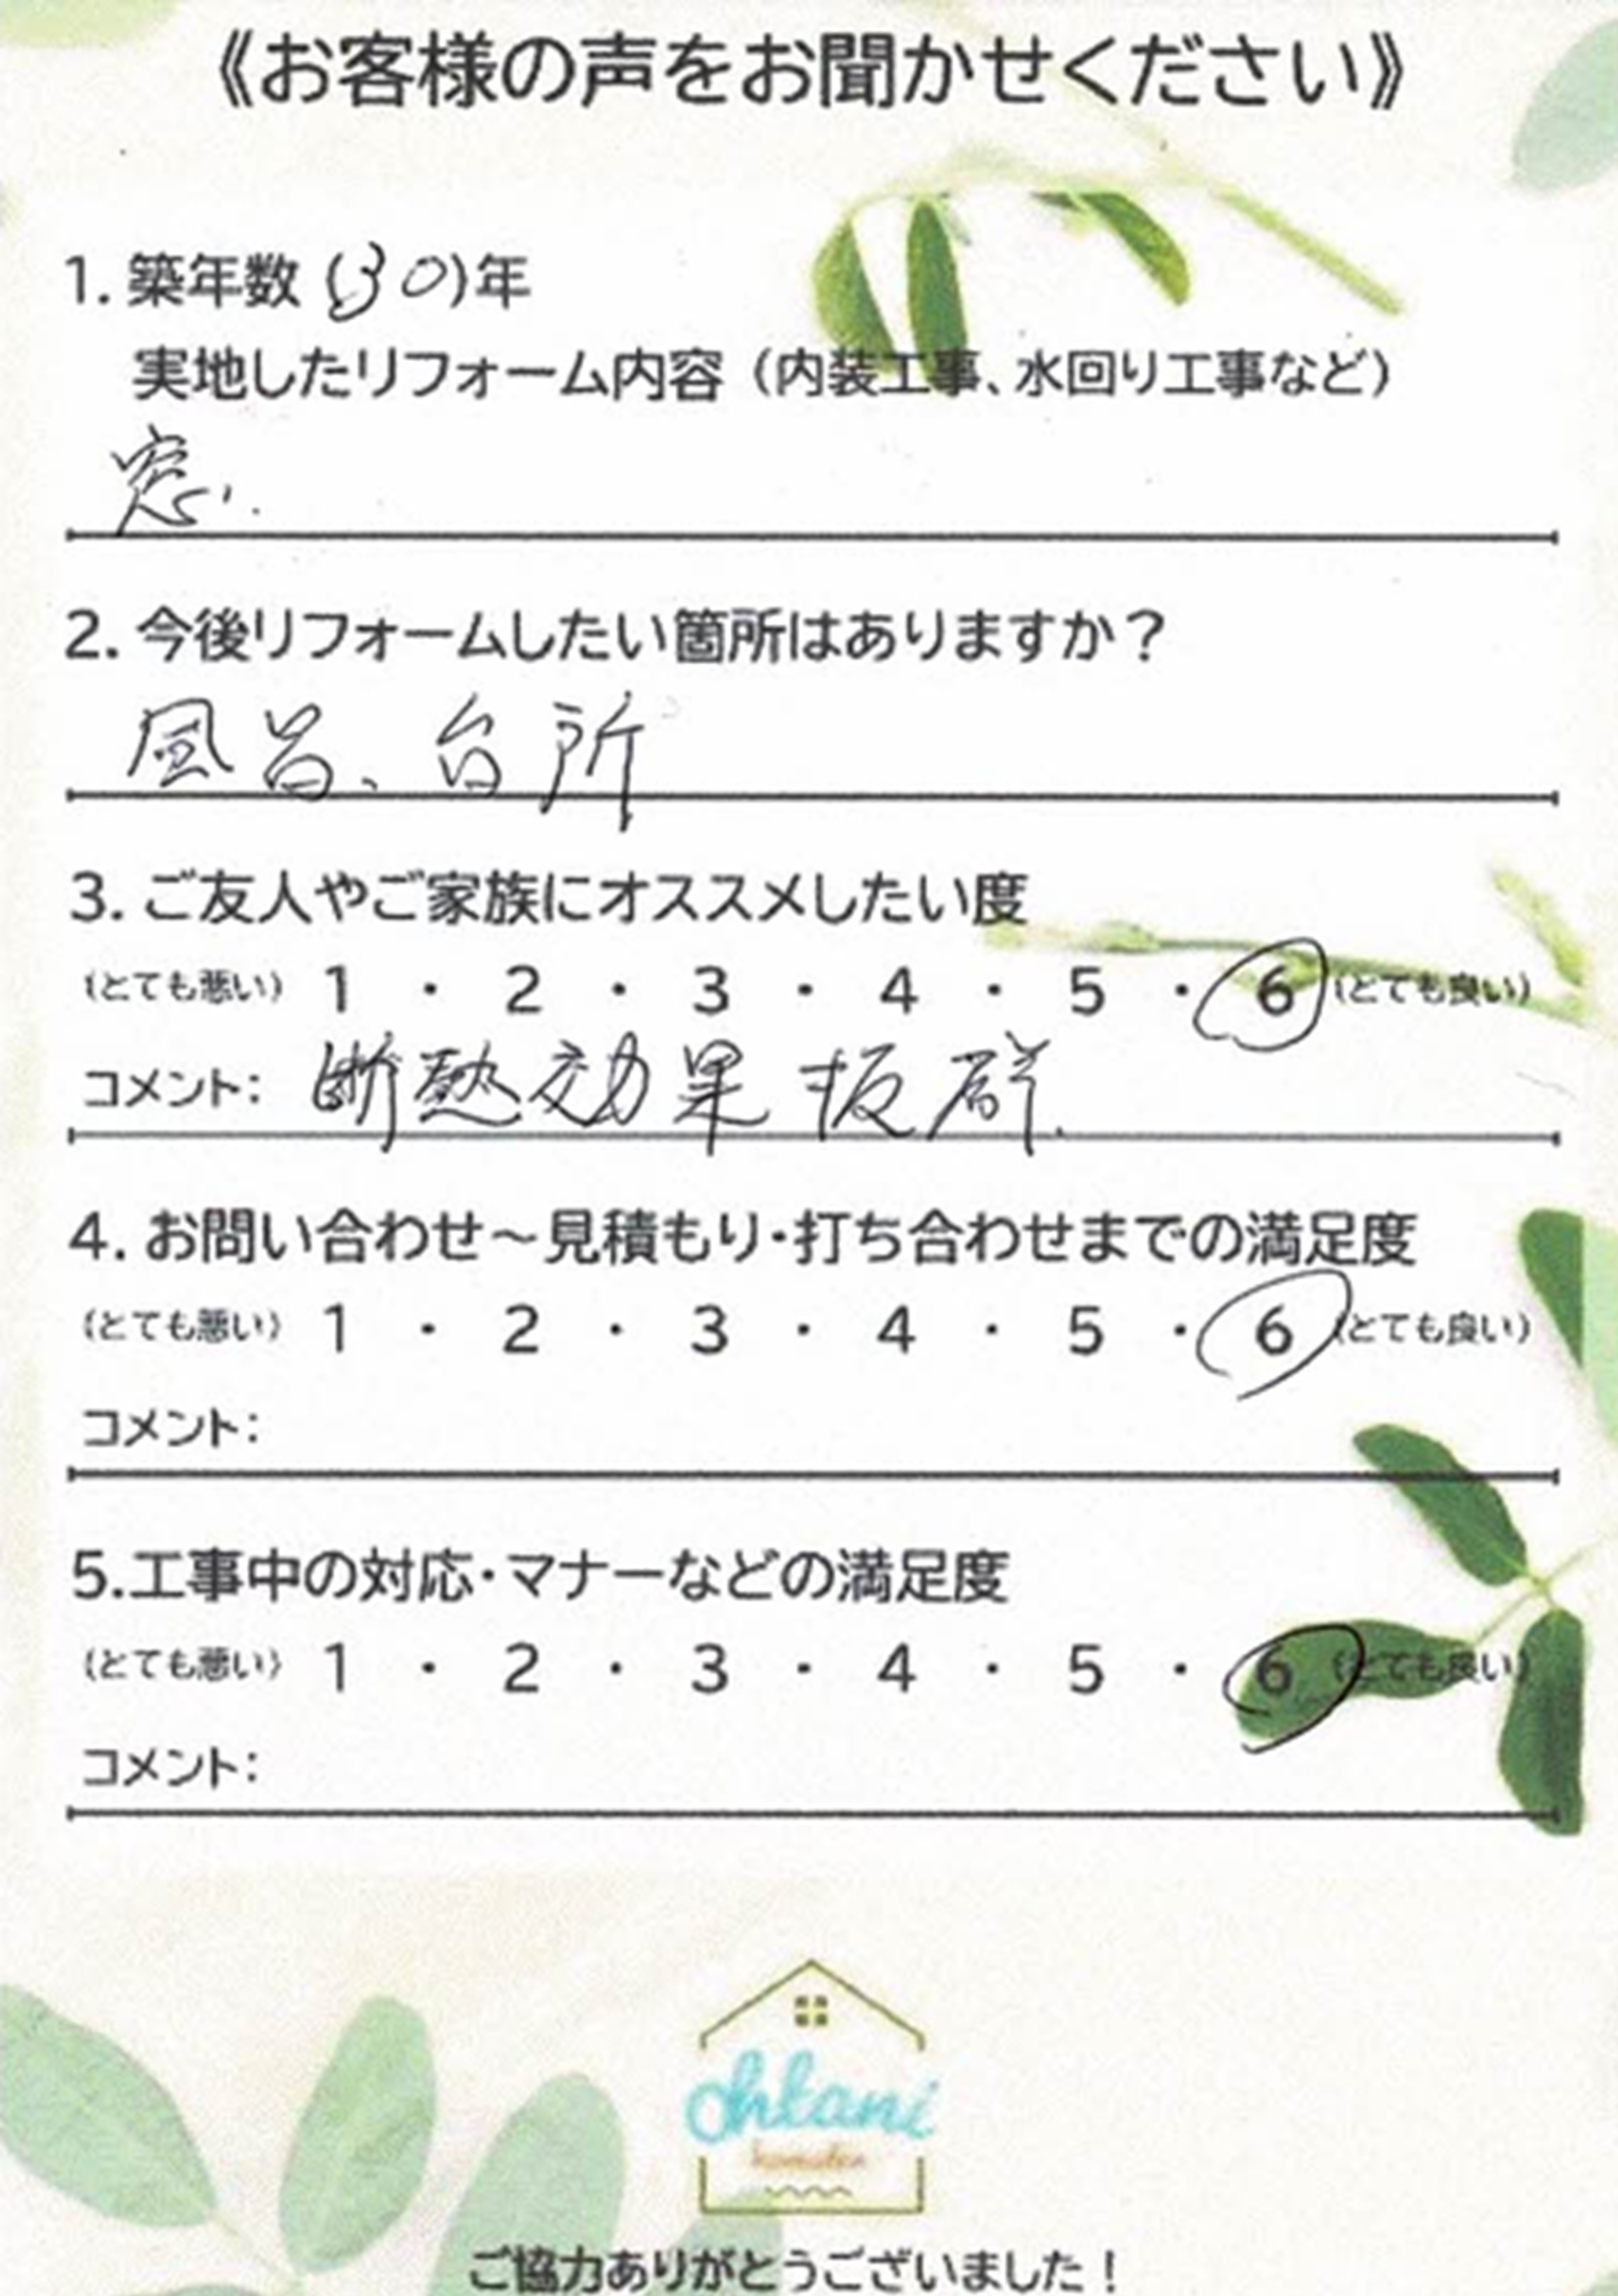 《お客様の声をお聞かせください》
1. 築年数 (30)年
実地したリフォーム内容（内装工事、水回り工事など）
窓.
2. 今後リフォームしたい箇所はありますか？
風呂、台所
3. ご友人やご家族にオススメしたい度
（とても悪い） 1 ・ 2 ・ 3 ・ 4 ・ 5 ・ 6 （とても良い）
コメント： 断熱効果抜群.
4. お問い合わせ～見積もり・打ち合わせまでの満足度
（とても悪い） 1 ・ 2 ・ 3 ・ 4 ・ 5 ・ 6 （とても良い）
コメント：
5.工事中の対応・マナーなどの満足度
（とても悪い） 1 ・ 2 ・ 3 ・ 4 ・ 5 ・ 6 （とても良い）
コメント：
Ohtani
ご協力ありがとうございました！